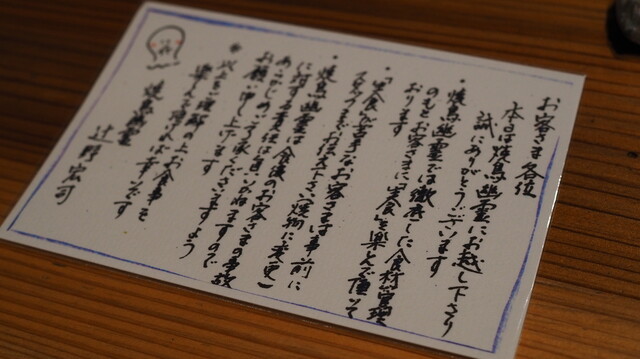 お客さま各位
本日は焼鳥幽霊にお越し下さり
誠にありがとうございます
・焼鳥幽霊では徹底した食材管理
のもとお客さまに「生食」を楽しんで頂いて
おります
・「生食」が苦手なお客さまは事前に
スタッフまでお伝え下さい(焼物に変更)
・焼鳥幽霊は食後のお客さまの事故
に対する責任は負いかねますので
あらかじめご了承くださいますよう
お願い申し上げます
※以上をご理解の上お食事を
楽しんで頂ければ幸いです
焼鳥幽霊
辻野宏司